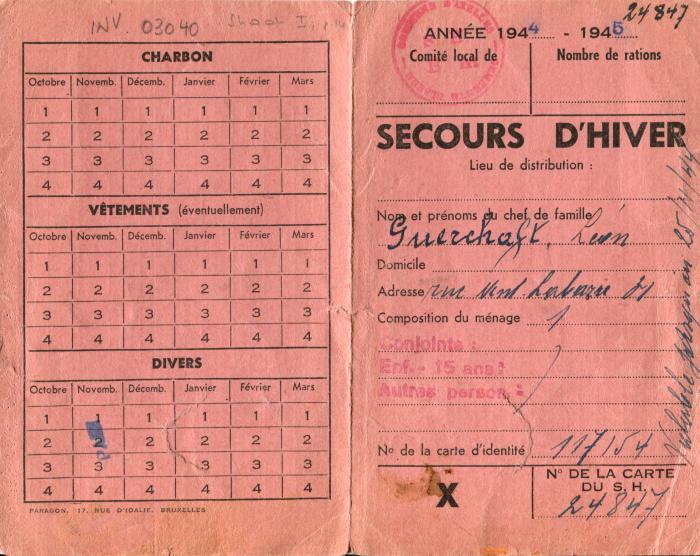 INV. 03040
CHARBON
Octobre Novemb. Décemb. Janvier Février Mars
1 1 1 1 1 1
2 2 2 2 2 2
3 3 3 3 3 3
4 4 4 4 4 4
VÊTEMENTS (éventuellement)
Octobre Novemb. Décemb. Janvier Février Mars
1 1 1 1 1 1
2 2 2 2 2 2
3 3 3 3 3 3
4 4 4 4 4 4
DIVERS
Octobre Novemb. Décemb. Janvier Février Mars
1 1 1 1 1 1
2 2 2 2 2 2
3 3 3 3 3 3
4 4 4 4 4 4
PARAGON, 17, RUE D'IDALIE, BRUXELLES
24847
ANNÉE 1944 - 1945
Comité local de Nombre de rations
SECOURS D'HIVER
Lieu de distribution :
Nom et prénoms du chef de famille
Léon
Domicile
Adresse rue
Composition du ménage 1
Conjointe :
Enf. - 15 ans :
Autres person. :
No de la carte d'identité 117154
X
No DE LA CARTE
DU S. H.
24847